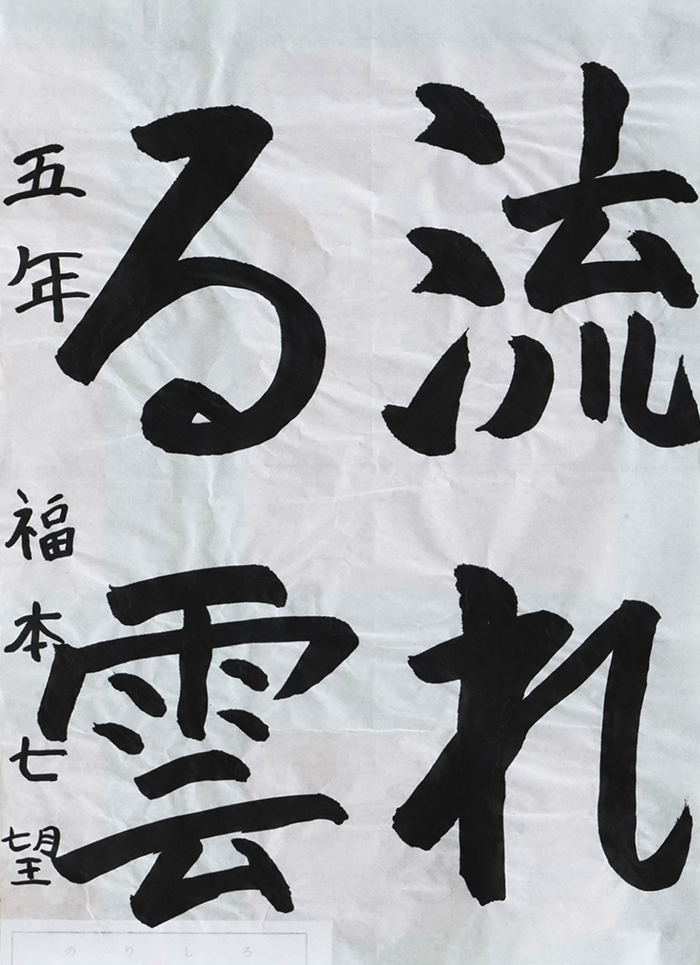 流れ
る雲
五年 福本七望
のりしろ